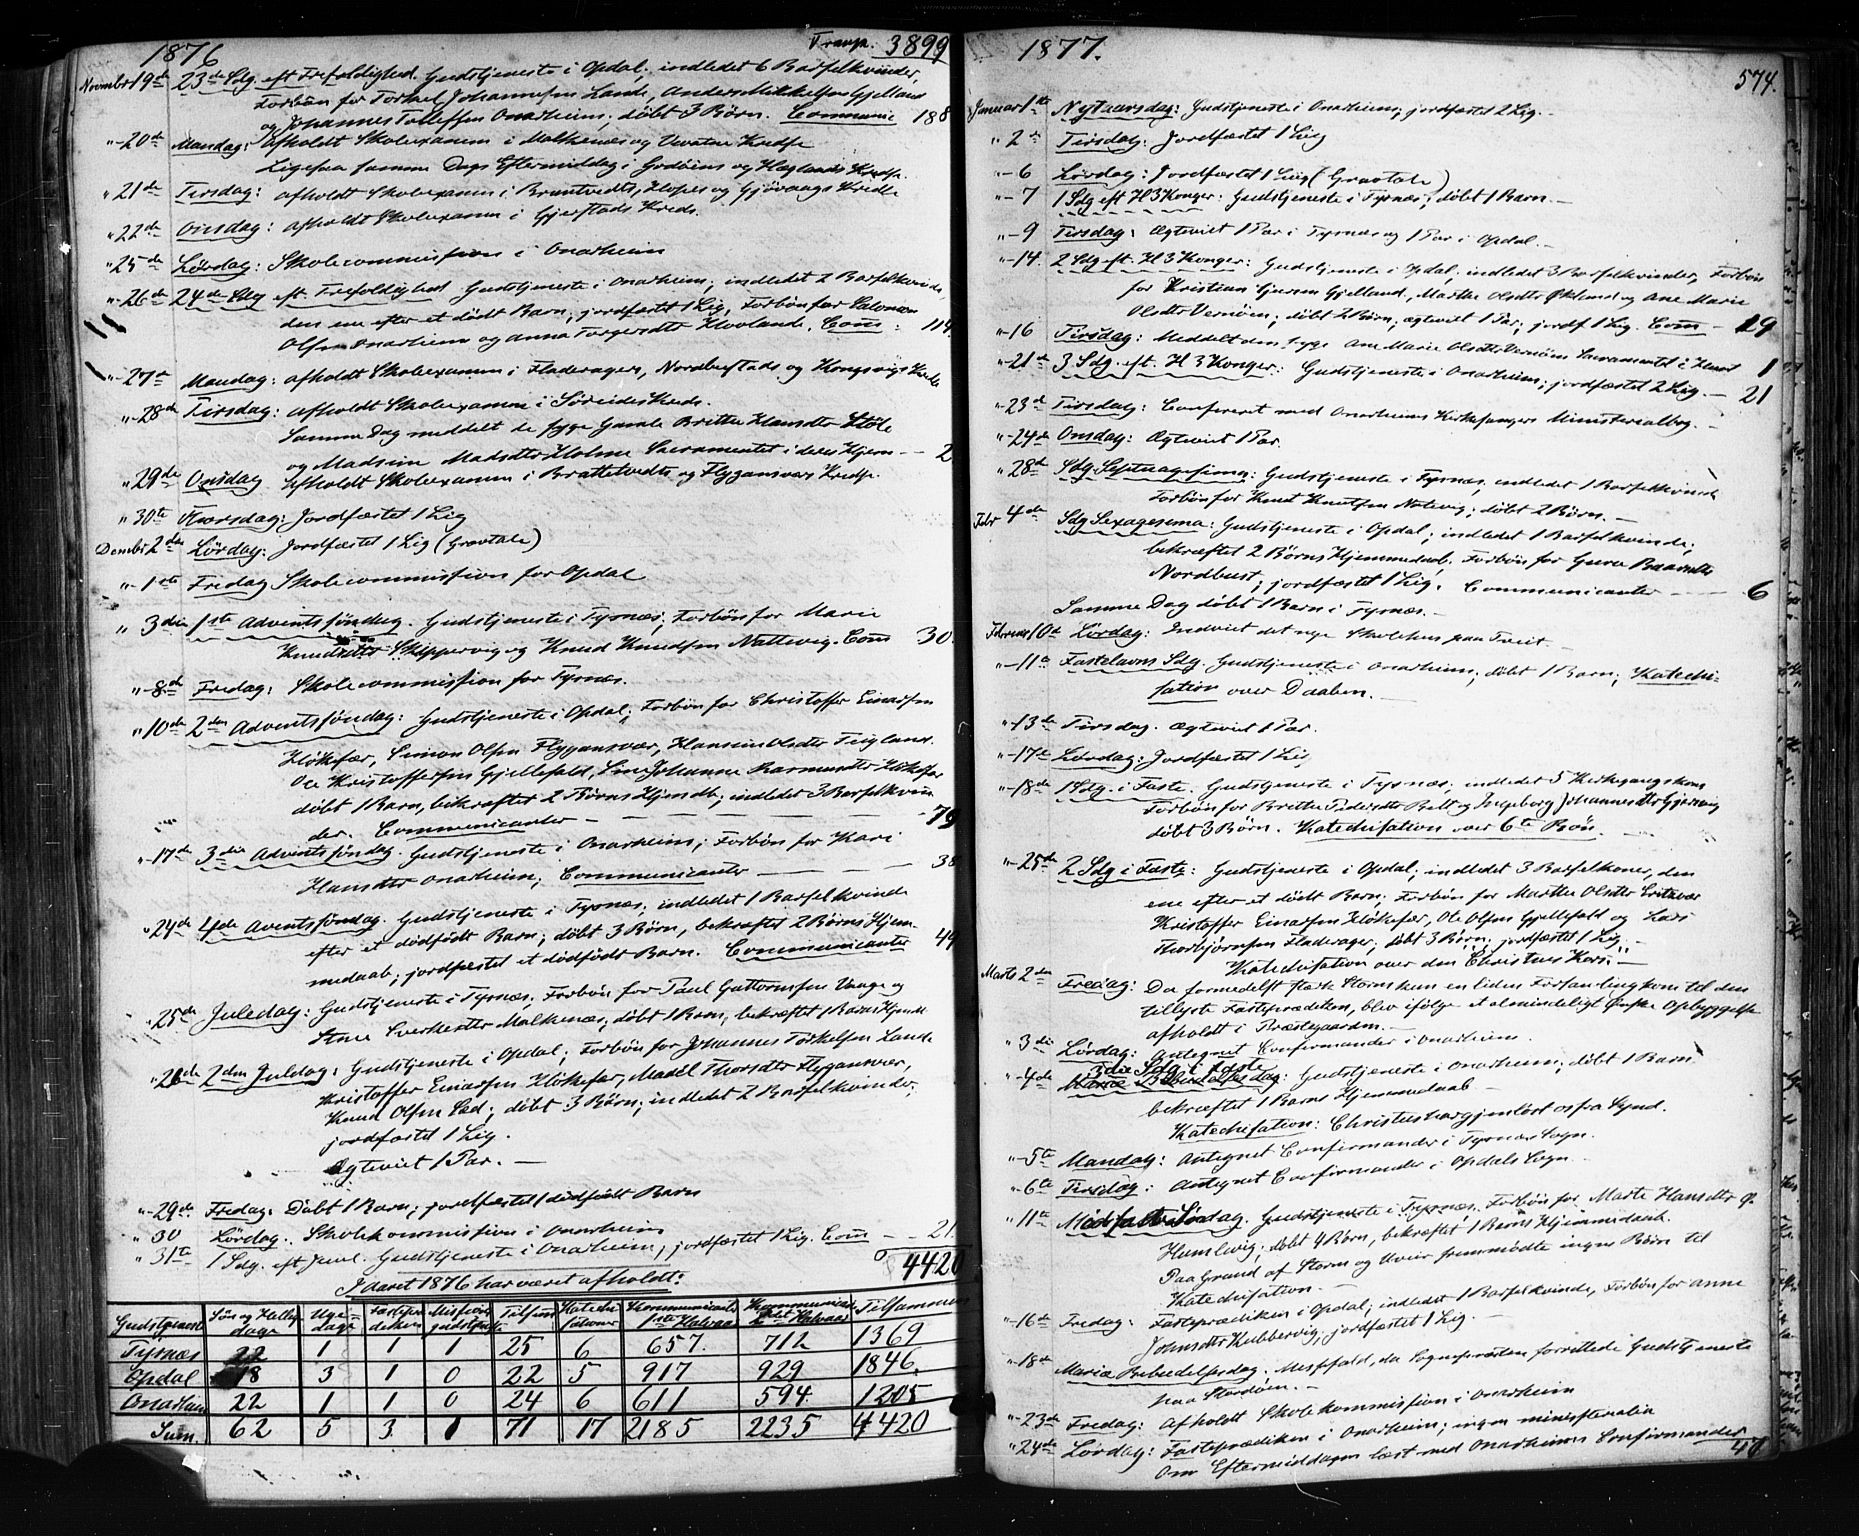 1876
Transp. 3899
Novembr 19de 23de Sdg eft Trefoldighed. Gudstjeneste i Opdal; indledet 6 Barselkvinder,
Forbøn for Torkel Johannessen Lande, Anders Mikkelsen Gjelland
og Johannes Onarheim; døbt 3 Børn. Communic 188
"-20de Mandag: afholdt Skolexamen i Malkenes og Kredse
Ligesaa samme Dags Eftermiddag i Godøens og Haglands Kredse.
"21de Tirsdag: afholdt Skolexamen i Brantvedts, Hopes og Gjøvaags Kredse
"22de Onsdag: afholdt Skolexamen i Gjerstads Kreds.
"25de Lørdag: Skolecommission i Onarheim
"-26de 24de Sdg eft. Trefoldighed Gudstjeneste i Onarheim; indledet 2 Barselkvinder,
den ene efter et dødt Barn; jordfæstet 1 Lig, Forbøn for Salomon
Olsen Onarheim og Anna Torgersdtr Hovlande. Com: 114
"-27de Mandag: afholdt Skolexamen i Fladeragers, Nordbustads og Kongsvigs Kredse
"-28de Tirsdag: afholdt Skolexamen i Søreide Kreds.
Samme Dag meddelt de syge Gamle Britte Hansdtr Støle
og Madsine Madsdtr Holme Sacramentet i deres Hjem - - 2
"29de Onsdag afholdt Skolexamen i Brattetvedts og Flygansvær Kredse.
"30te Thorsdag: Jordfæstet 1 Lig
Decembr 2den Lørdag: Jordfæstet 1 Lig (Gravtale)
"-1ste Fredag Skolecommission for Opdal
" 3die 1ste Adventssøndag. Gudstjeneste i Tysnæs; Forbøn for Marie
Knudsdtr Skippervig og Knud Knudsen Nattevig. Com 30.
"-8de Fredag: Skolecommission for Tysnæs.
"10de 2den Adventssøndag: Gudstjeneste i Opdal; Forbøn for Christoffer Einarsen
Høkefær, Simon Olsen Flygansvær, Hansine Olsdtr Teigland.
Ole Kristoffersen Gjellefald, Sine Johanne Rasmusdtr Høkefær
døbt 1 Barn, bekræftet 2 Børns Hjemdb; indledet 3 Barselkvin
der. Communicanter - - - - - 79
"-17de 3die Adventssøndag. Gudstjeneste i Onarheim; Forbøn for Kari
Hansdtr Onarheim; Communicanter - - - 38
"24de 4de Aventssøndag. Gudstjeneste i Tysnæs, indledet 1 Barselkvinde
efter et dødfødt Barn; døbt 3 Børn, bekræftet 2 Børns Hjem-
medaab; jordfæstet et dødfødt Barn. Communicanter 49
"25de Juledag: Gudstjeneste i Tysnæs, Forbøn for Paul Guttormsen Vaage og
Stine Sverkesdtr Malkenæs; døbt 1 Barn, bekræftet 1 Barns Hjemdb
"26de 2den Juledag: Gudstjeneste i Opdal; Forbøn for Johannes Torkelsen Lande
Kristoffer Einarsen Høkefær, Madel Thorsdtr Flygansvær,
Knud Olsen Lad; døbt 3 Børn; indledet 2 Barselkvinder;
jordfæstet 1 Lig.
Ægteviet 1 Par. -
"-29de. Fredag: Døbt 1 Barn; jordfæstet 1 dødfødt Barn
"30 Lørdag. Skolekommission i Onarheim
" 31te 1 Sdg. eft Juul. Gudstjeneste i Onarheim, jordfæstet 1 Lig. Com - - 21.
4420
I aaret 1876 har været afholdt:
Gudstjeneste Søn og Hellig dage Uge- dage Fastepræ diken Missions gudstjeneste Tilsam Katechi sationer Kommunicanter 1ste Halvaar Kommunicanter 2det Halvaar Tilsammen
Tysnæs 22 1 1 1 25 6 657. 712 1369
Opdal 18 3 1 0 22 5 917 929 1846.
Onarheim 22 1 1 0 24 6 611 594 1205
Sum. 62 5 3 1 71 17 2185 2235 4420
1877.
574.
Januar 1ste Nytaarsdag: Gudstjeneste i Onarheim; jordfæstet 2 Lig. -
"- 2de Tirsdag: Jordfæstet 1 Lig
"- 6 Lørdag: Jordfæstet 1 Lig (Gravtale)
"- 7 1 Sdg eft H 3 Konger: Gudstjeneste i Tysnæs; døbt 1 Barn. -
"- 9 Tirsdag: Ægteviet 1 Par i Tysnæs og 1 Par i Opdal. -
"-14. 2 Sdg eft. H 3 Konger: Gudstjeneste i Opdal, indledet 3 Barselkvinder, Forbøn
for Kristian Gjelland, Marthe Olsdtr Økland og Ane Marie
Olsdtr Vernøen; døbt 2 Børn; ægteviet 1 Par; jordf 1 Lig. Com - 19
"-16 Tirsdag: Meddelt den syge Ane Marie Olsdtr Vernøen Sacramentet i Huset 1
"-21de 3 Sdg. eft. H 3 Konger: Gudstjeneste i Onarheim; jordfæstet 2 Lig. - 21
"-23de Tirsdag: Confereret med Onarheims Kirkesangers Ministerialbog. -
"-24de Onsdag: Ægteviet 1 Par.
"28de Sdg Septuagesima: Gudstjeneste i Tysnæs, indledet 1 Barselkvinde
Forbøn for Knut Knutsen Natevig; døbt 2 Børn. -
Febr 4de Sdg Sexagesima: Gudstjeneste i Opdal; indledet 1 Barselkvinde;
bekræftet 2 Børns Hjemmedaab, Forbøn for Guro
Nordhust; jordfæstet 1 Lig. Communicanter - - 6
Samme Dag døbt 1 Barn i Tysnæs. -
Februar 10de Lørdag: Indviet det nye Skolehus paa Tveit -
"-11te Fastelavns Sdg. Gudstjeneste i Onarheim; døbt 1 Barn; Katechi-
sation over Daaben. -
"-13de Tirsdag. Ægteviet 1 Par.
"-17de Lørdag: Jordfæstet 1 Lig
"-18de 1 Sdg. i Faste. Gudstjeneste i Tysnæs, indledet 5 Kirkegangskoner
Forbøn for Britte Pedersdtr Belt og Ingeborg Johannesdtr
døbt 3 Børn. Katechisation over 6te Bøn. -
"-25de 2 Sdg i Faste: Gudstjeneste i Opdal; indledet 3 Barselkoner, den
ene efter et dødt Barn; Forbøn for Marthe Olsdtr
Kristoffer Einarsen Høkefær, Ole Olsen Gjellefald og Lars
Thorbjørnsen Fladerager; døbt 3 Børn; jordfæstet 1 Lig. -
Katechisation over den Christnes Kors. -
Marts 2den Fredag: Da formedelst stærk Storm kun en liden Forsamling kom til den
tillyste Fasteprædiken, blev ifølge et almindeligt Ønske Opbyggelse
afholdt i Præstegaarden. -
" 3die Lørdag: Antegnet Confirmander i Onarheim.
"-4de 3die Sdg i Faste Mariæ Bebudelsesdag: Gudstjeneste i Onarheim; døbt 1 Barn
bekræftet 1 Barns Hjemmedaab -
Katechisation: Christus har gjenløst os fra Synd.
"-5te Mandag: Antegnet Confirmander i Tysnæs Sogn.
"-6te Tirsdag: Antegnet Confirmander i Opdals Sogn -
"11te Midfaste Søndag. Gudstjeneste i Tysnæs. Forbøn for Marte Hansdtr
Humlevig; døbt 4 Børn, bekræftet 1 Barns Hjemmedaab.
Paa Grund af Storm og Uveir fremmødte ingen Børn til
Katechisation. -
"-16de Fredag: Fasteprædiken i Opdal; indledet 1 Barselkvinde, Forbøn for Anne
Johnsdtr Kubbervig, jordfæstet 1 Lig. -
"-18de Mariæ Bebudelsesdag. Messefald, da Sognepræsten forrettede Gudstjeneste
paa Stordøen. -
"-23de Fredag: Afholdt Skolekommission i Onarheim
"24de Lørdag: Fasteprædiken i Onarheim; ingen ministerialia
Om Eftermiddagen læst med Onarheims Confirmander
47